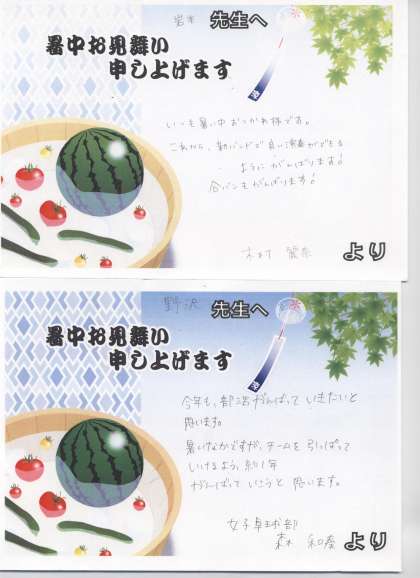 岩本 先生へ
暑中お見舞い
申し上げます
いつも暑い中おつかれ様です。
これから、勤バンドで良い演奏ができる
ようにがんばります!
合バンもがんばります!
より
野沢 先生へ
暑中お見舞い
申し上げます
今年も、部活がんばっていきたいと
思います。
暑いなかですが、チームを引っぱって
いけるよう、約1年
がんばっていこうと思います。
女子卓球部
森 和奏
より